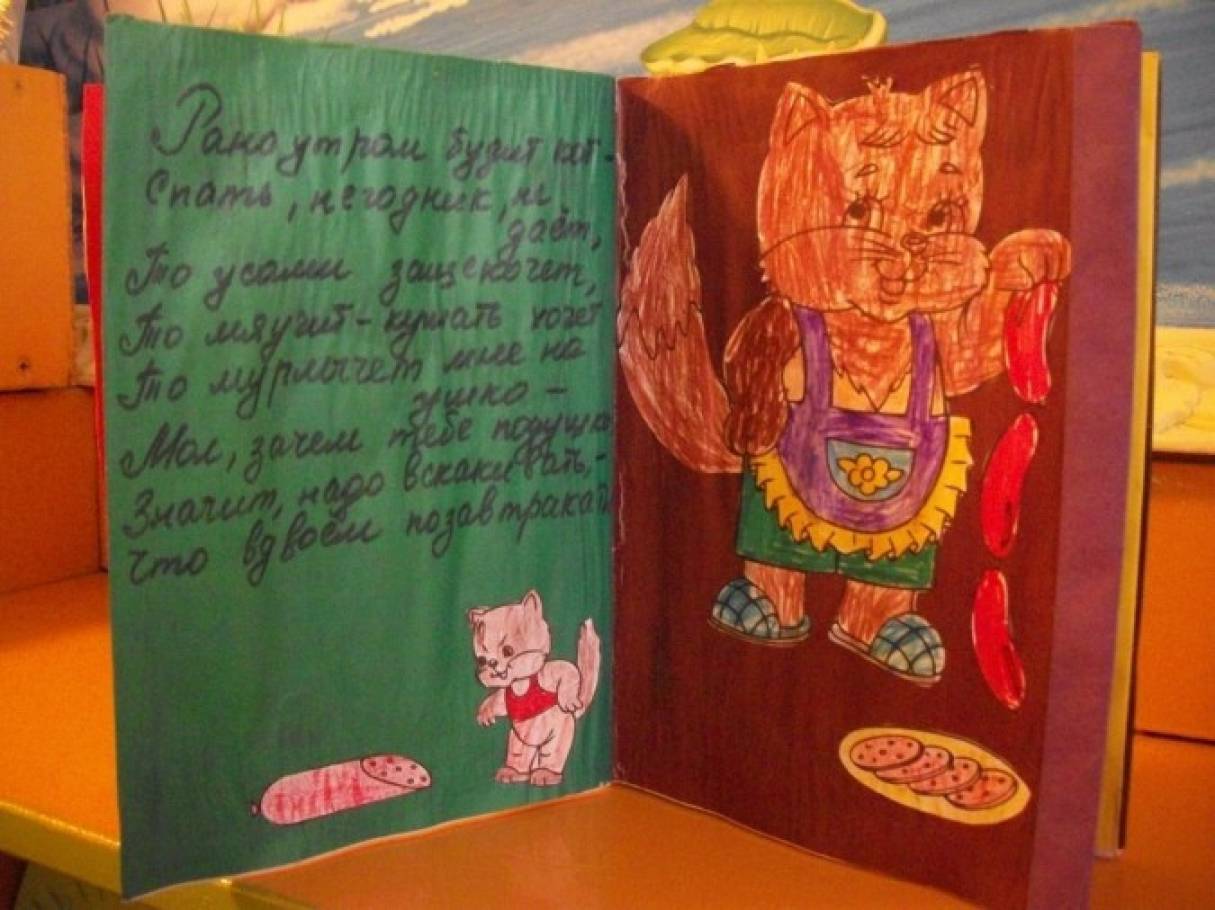 Рано утром будит кот -
Спать, негодник, не
даёт,
То усами защекочет,
То мяучит - кушать хочет
То мурлычет мне на
ушко -
Мол, зачем тебе подушка
Значит, надо вскакивать, -
что вдвоём позавтракать